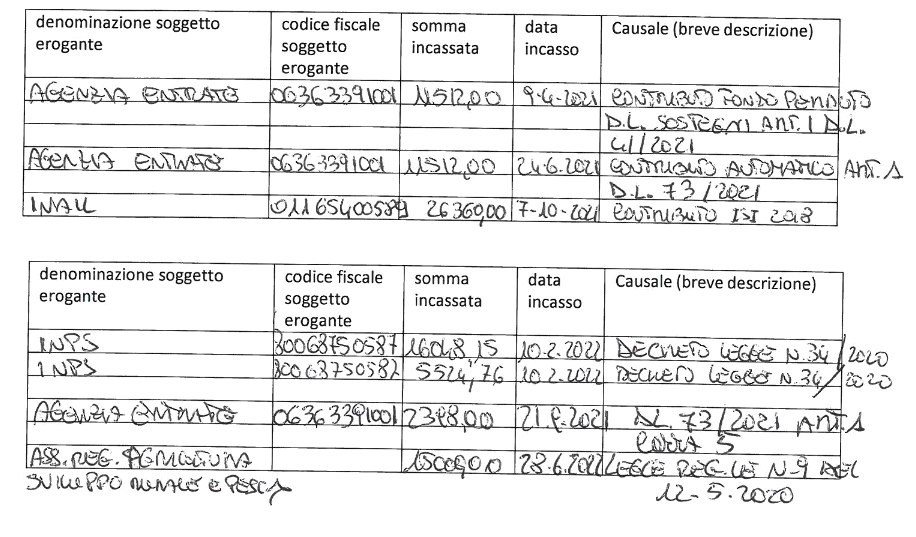 denominazione soggetto erogante codice fiscale soggetto erogante somma incassata data incasso Causale (breve descrizione)
AGENZIA ENTRATE 06363391001 11512,00 9-4-2021 CONTRIBUTO FONDO PERDUTO
D.L. SOSTEGNI ART. 1 D.L.
41/2021
AGENZIA ENTRATE 06363391001 11512,00 24.6.2021 CONTRIBUTO AUTOMATICO ART. 1
D.L. 73/2021
INAIL 01165400589 26360,00 7-10-2021 CONTRIBUTO ISI 2018
denominazione soggetto erogante codice fiscale soggetto erogante somma incassata data incasso Causale (breve descrizione)
INPS 80078750587 16048,15 10.2.2022 DECRETO LEGGE N.34/2020
INPS 5524,76 10.2.2022 DECRETO LEGGE N.34/2020
AGENZIA ENTRATE 06363391001 2398,00 DL. 73/2021 ART.1
COMMA 5
ASS.REG. AGRICOLTURA 28.6.2022 LEGGE REG.LE N.9 DEL
SVILUPPO RURALE E PESCA 12-5.2020